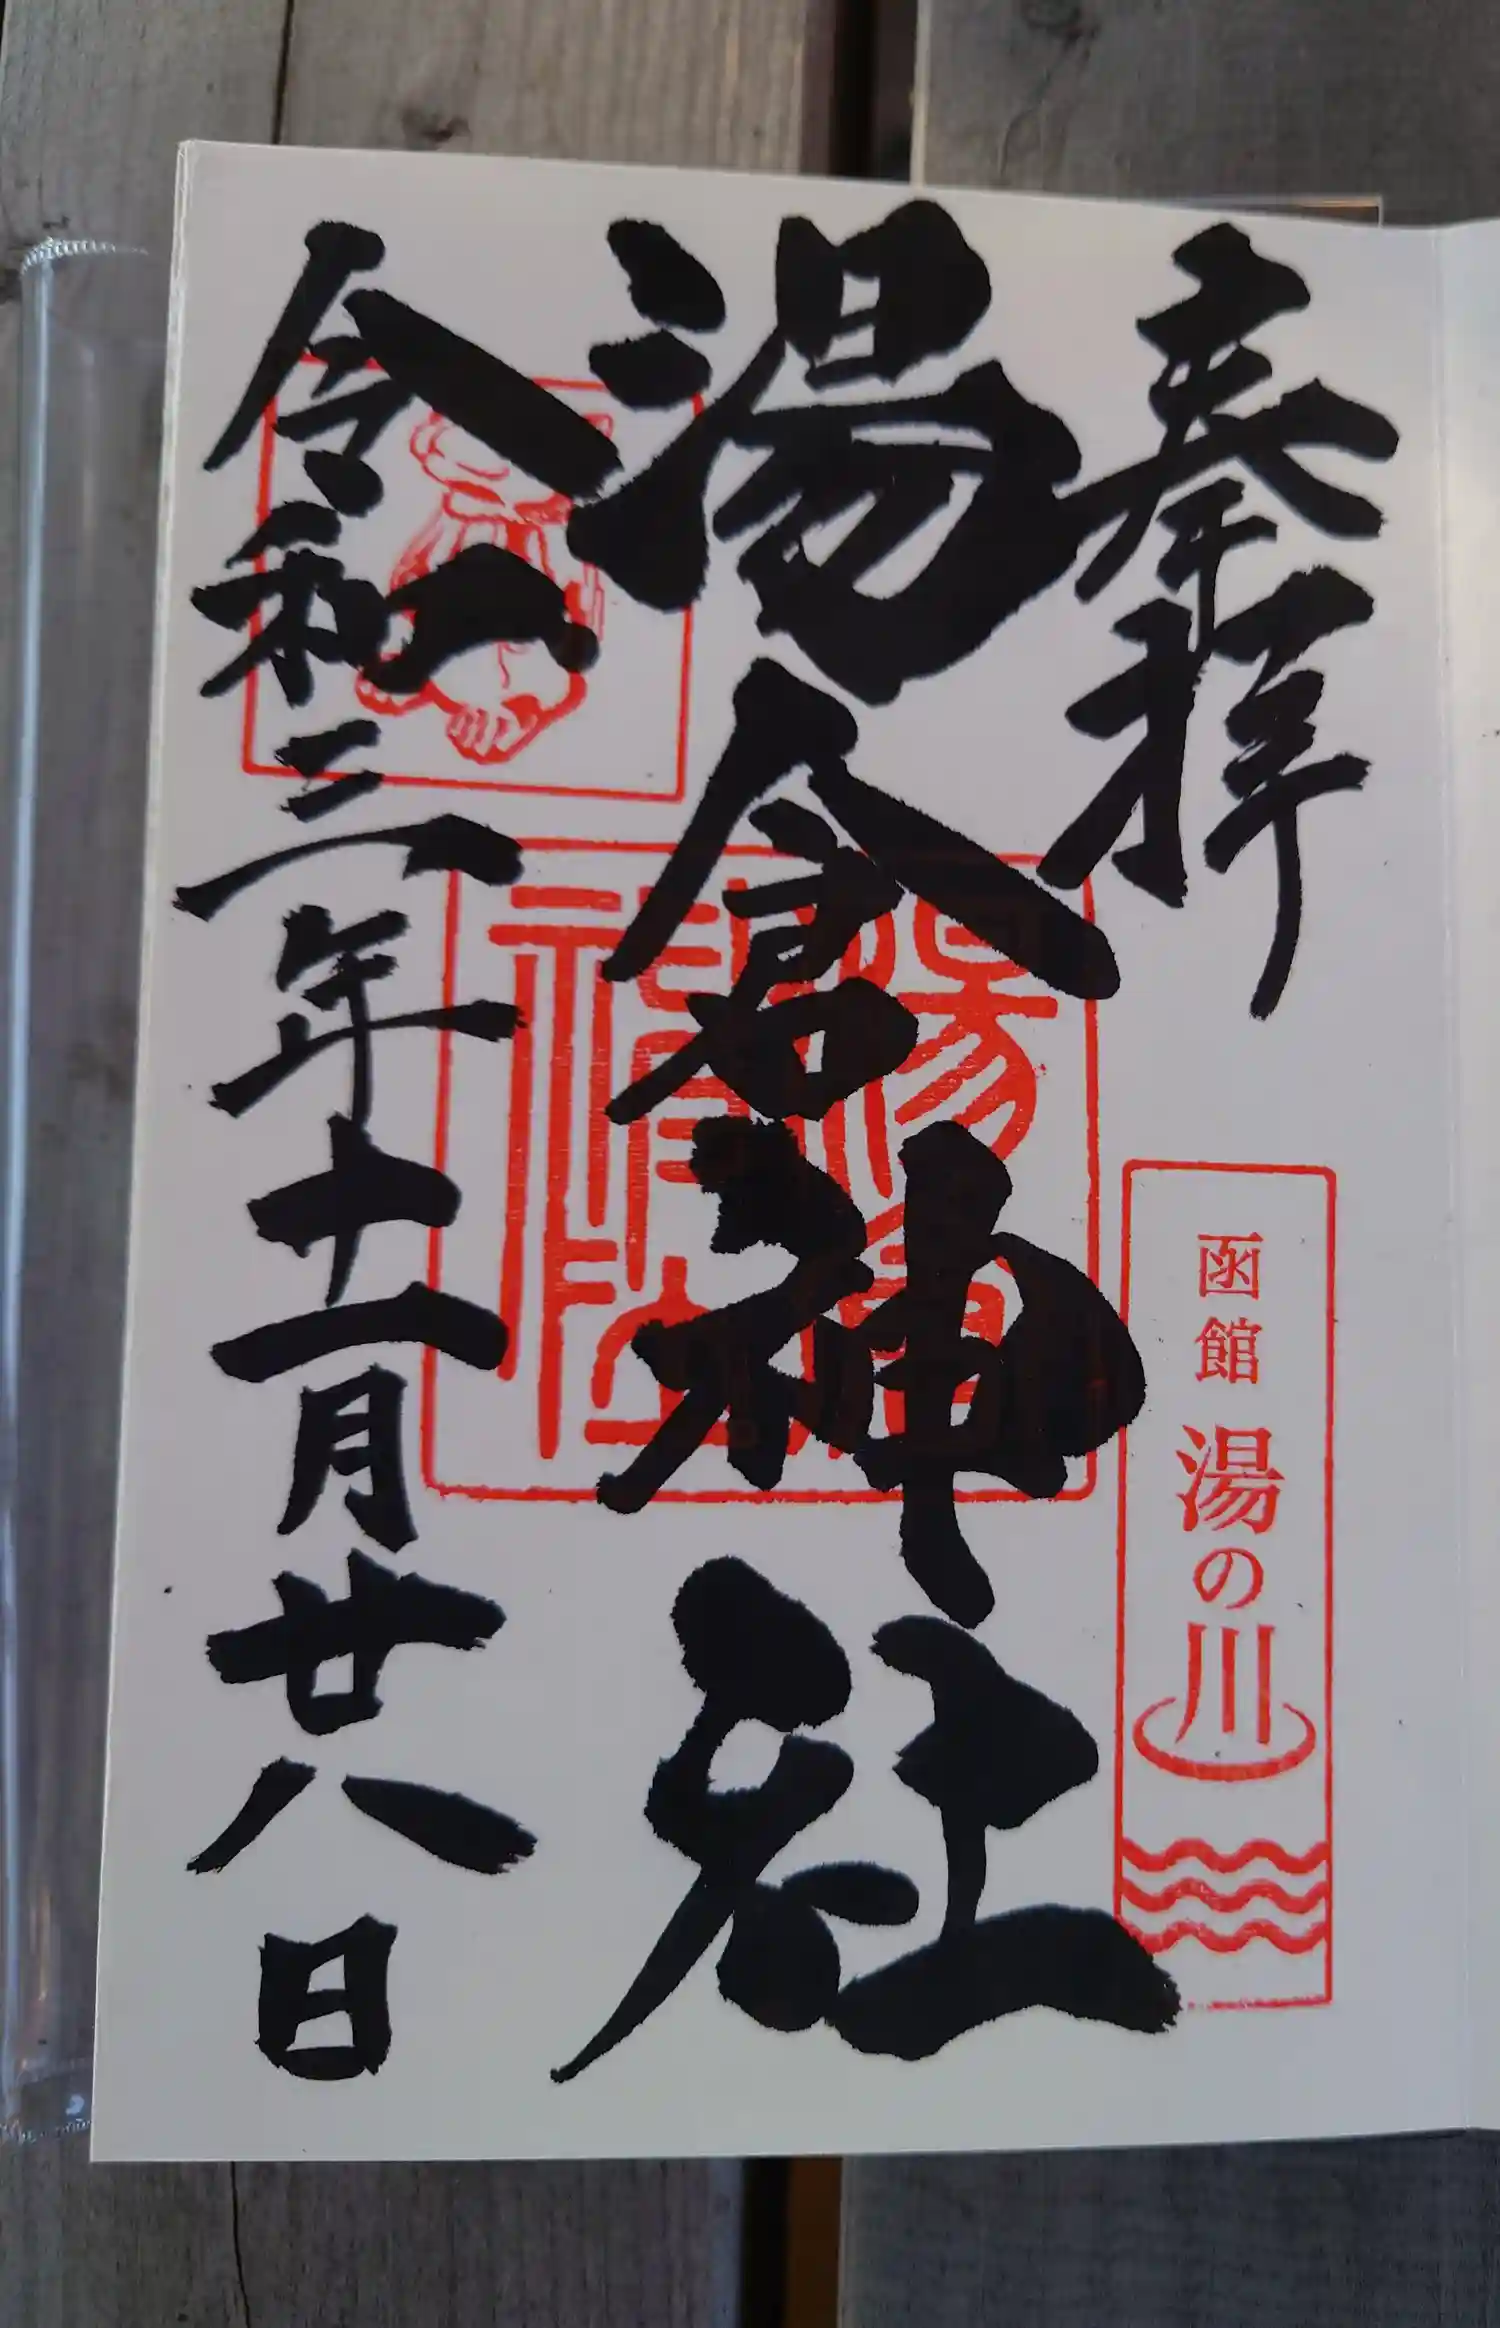 奉拝
函館 湯の川
湯倉神社
湯倉神社
令和三年十一月廿八日